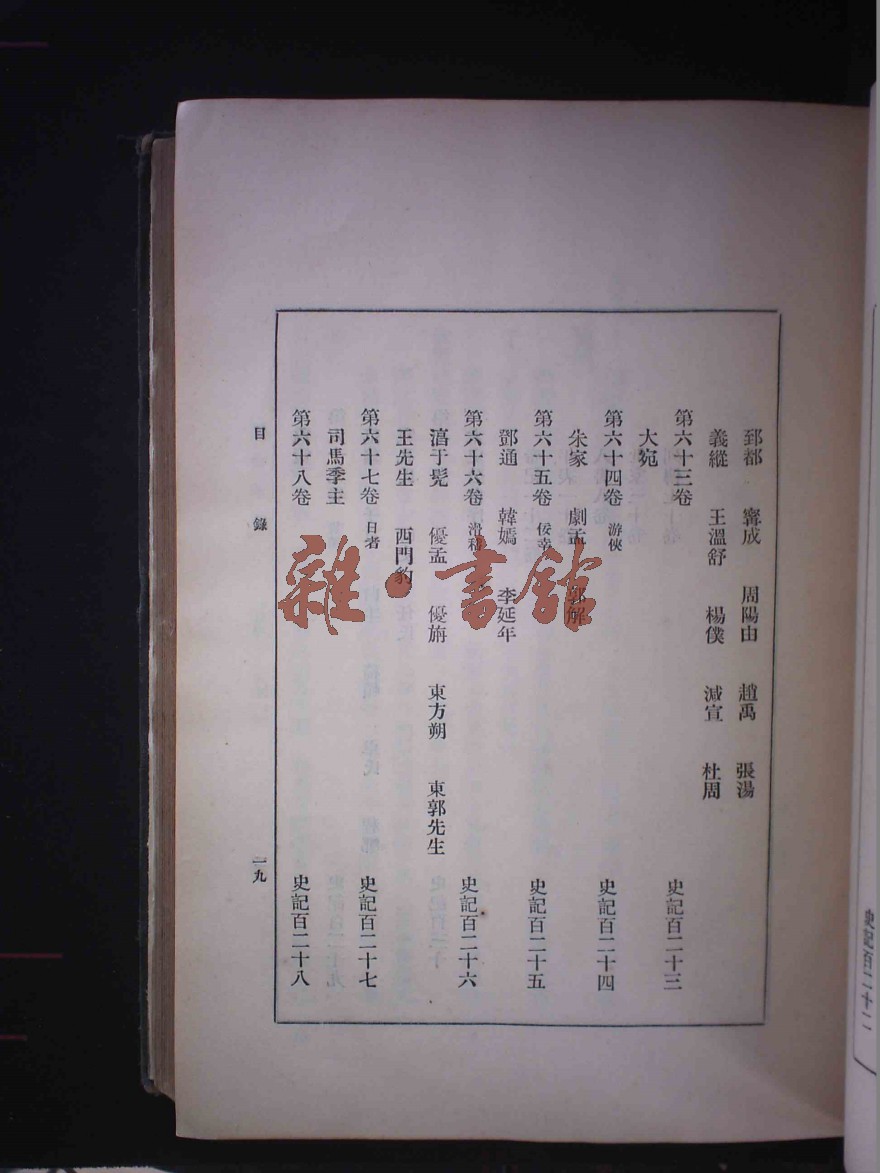 郅都 寗成 周陽由 趙禹 張湯
義縱 王溫舒 楊僕 減宣 杜周
第六十三卷 史記百二十三
大宛
第六十四卷 游俠 史記百二十四
朱家 劇孟 郭解
第六十五卷 佞幸 史記百二十五
鄧通 韓嫣 李延年
第六十六卷 滑稽 史記百二十六
淳于髠 優孟 優旃 東方朔 東郭先生
王先生 西門豹
第六十七卷 日者 史記百二十七
司馬季主
第六十八卷 史記百二十八
目錄 一九
雜·書館
史記百二十二